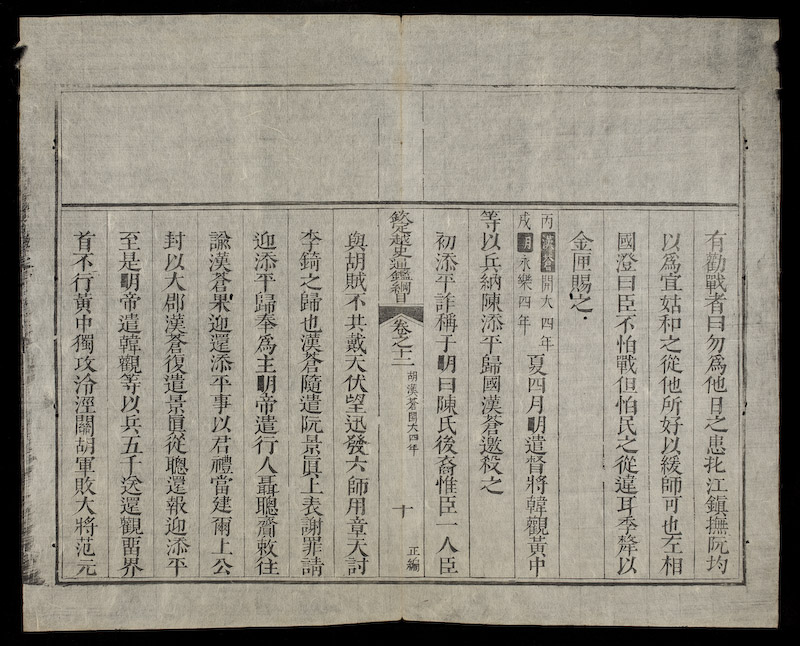 有勸戰者曰勿爲他日之患北江鎮撫阮均
以爲宜姑和之從他所好以緩師可也左相
國澄曰臣不怕戰但怕民之從違耳季犛以
金匣賜之
丙戌漢蒼開大四年明永樂四年夏四月明遣督將韓觀黃中
等以兵納陳添平歸國漢蒼邀殺之
初添平詐稱于明曰陳氏後裔惟臣一人臣
欽定越史通鑑綱目 卷之十二 胡漢蒼開大四年 十 正編
與胡賊不共戴天伏望迅發六師用章天討
李錡之歸也漢蒼隨遣阮景眞上表謝罪請
迎添平歸奉爲主明帝遣行人聶聰齎敕往
諭漢蒼果迎還添平事以君禮當建爾上公
封以大郡漢蒼復遣景眞從聰還報迎添平
至是明帝遣韓觀等以兵五千送還觀畱界
首不行黃中獨攻冷涇關胡軍敗大將范元